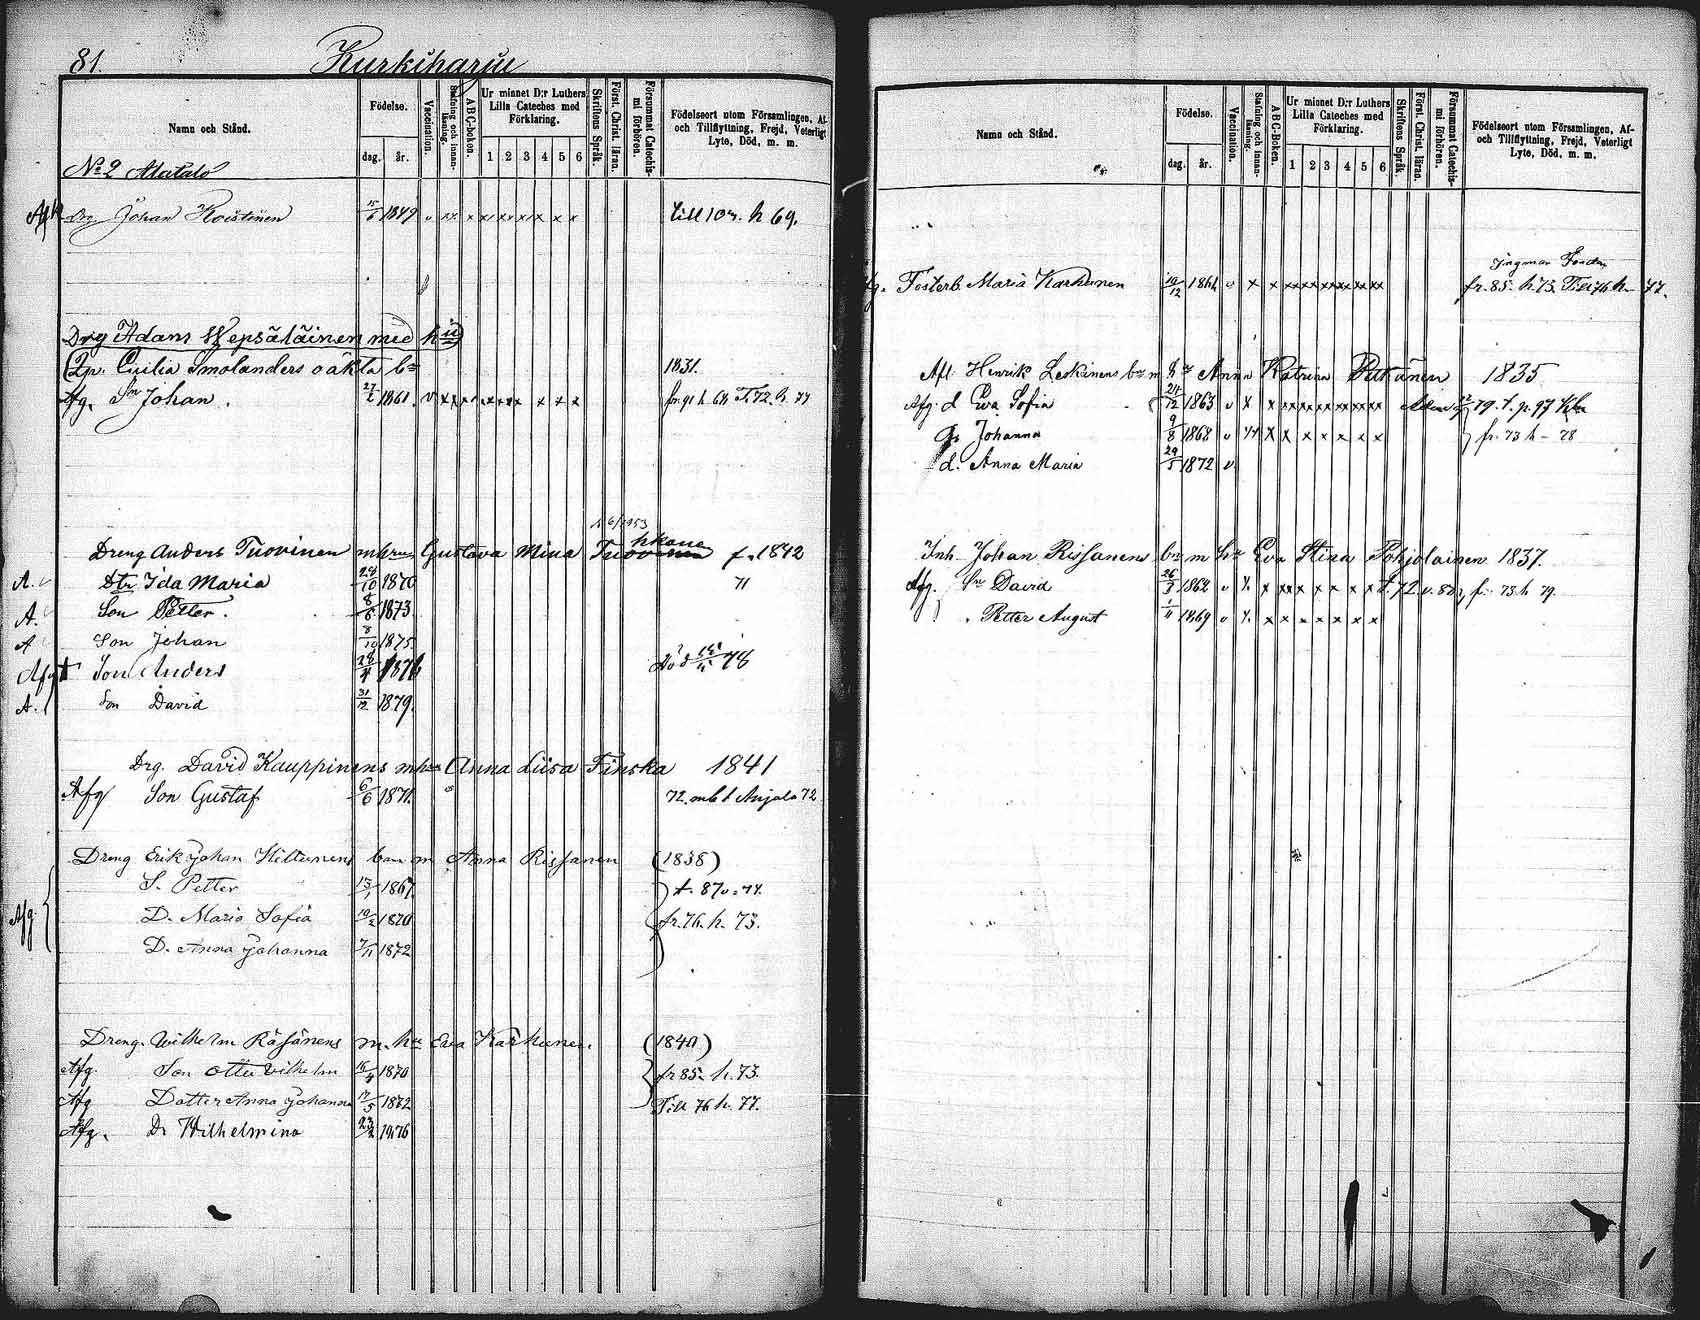 81.
Kurkiharju
Namn och Stånd.
Födelse.
dag.
år.
Vaccination.
Stafning och innan-läsning.
ABC-boken.
Ur minnet D:r Luthers
Lilla Cateches med
Förklaring.
1 2 3 4 5 6
Skriftens Språk.
Först. Christ. läran.
Försummat Catechis-
mi förhören.
Födelseort utom Församlingen, Af-
och Tillflyttning, Frejd, Veterligt
Lyte, Död, m. m.
No 2 Alatalo
Johan Koistinen 15/6 1849 v xx x x x x x x x till 103. h 69.
Drg Adam Wepsäläinen med hu
Cicilia Smolanders oäkta bn 1831.
Afg. Sn Johan. 27/2 1861. v x x x x x x x x x T. 72. h. 77
Dreng Anders Tuovinen m hrun Gustava Mina f. 1842
A. Dtr Ida Maria 28/10 1870 71
A. Son Petter. 8/6 1873.
A Son Johan 8/10 1875.
Afg † Son Anders 28/4 1876 Död 78
A. Son David 31/12 1879.
Drg. David Kauppinens m hu Anna Liisa Finska 1841
Afg Son Gustaf 6/6 1871. 72. mb t Anjala 72
Dreng Erik Johan Kiltunens barn m Anna Rissanen (1838)
S. Petter 1867. t. 87
Afg. D. Maria Sofia 1870 fr. 76. h. 73.
D. Anna Johanna 7/11 1872
Dreng. Wilhelm Räsänens m. hu Eva Karhunen (1840)
Afg. Son Otto Vilhelm 16/4 1870 fr 85. h. 73.
Afg Dotter Anna Johanna 17/5 1872 Till 76 h. 77.
Afg. Dr Wilhelmina 1876
Namn och Stånd.
Födelse.
dag.
år.
Vaccination.
Stafning och innan-läsning.
ABC-Boken.
Ur minnet D:r Luthers
Lilla Cateches med
Förklaring.
1 2 3 4 5 6
Skriftens Språk.
Först. Christ. läran.
Försummat Catechis-
mi förhören.
Födelseort utom Församlingen, Af-
och Tillflyttning, Frejd, Veterligt
Lyte, Död, m. m.
Fosterb. Maria Karhunen 10/12 1864 v x x x x x x x x x fr. 85. h. 73. Till 76 h. 77.
Afl. Henrik Leskinens bn m hr Anna Katrina Pitkänen 1835
Afg. d Eva Sofia 24/12 1863 v x x x x x x x x x 79. t. p. 97
Johanna 9/8 1868 v x x x x x x x x fr. 73 h - 78
d. Anna Maria 29/5 1872 v.
Inh. Johan Rissanens bn m hu Eva Stina Pohjolainen 1837.
Afg. Sn David 26/3 1862 v x x x x x x x x t. 72 fr. 73 h 79.
Petter August 1/11 1869 v x x x x x x x